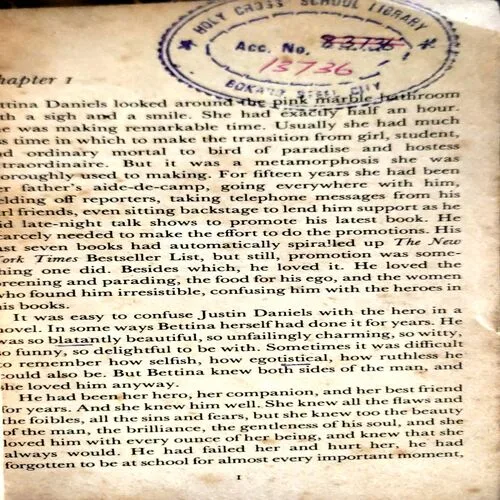 HOLY CROSS SCHOOL LIBRARY
Acc. No. 83736
13736
BOKARO STEEL CITY
hapter 1
ttina Daniels looked around the pink marble bathroom
th a sigh and a smile. She had exactly half an hour.
e was making remarkable time. Usually she had much
s time in which to make the transition from girl, student,
nd ordinary mortal to bird of paradise and hostess
traordinaire. But it was a metamorphosis she was
oroughly used to making. For fifteen years she had been
er father's aide-de-camp, going everywhere with him,
elding off reporters, taking telephone messages from his
rl friends, even sitting backstage to lend him support as he
id late-night talk shows to promote his latest book. He
carcely needed to make the effort to do the promotions. His
ast seven books had automatically spiralled up The New
ork Times Bestseller List, but still, promotion was some-
hing one did. Besides which, he loved it. He loved the
reening and parading, the food for his ego, and the women
who found him irresistible, confusing him with the heroes in
is books.
It was easy to confuse Justin Daniels with the hero in a
novel. In some ways Bettina herself had done it for years. He
was so blatantly beautiful, so unfailingly charming, so witty,
so funny, so delightful to be with. Sometimes it was difficult
o remember how selfish, how egotistical, how ruthless he
could also be. But Bettina knew both sides of the man, and
she loved him anyway.
He had been her hero, her companion, and her best friend
for years. And she knew him well. She knew all the flaws and
the foibles, all the sins and fears, but she knew too the beauty
of the man, the brilliance, the gentleness of his soul, and she
loved him with every ounce of her being, and knew that she
always would. He had failed her and hurt her, he had
forgotten to be at school for almost every important moment,
1